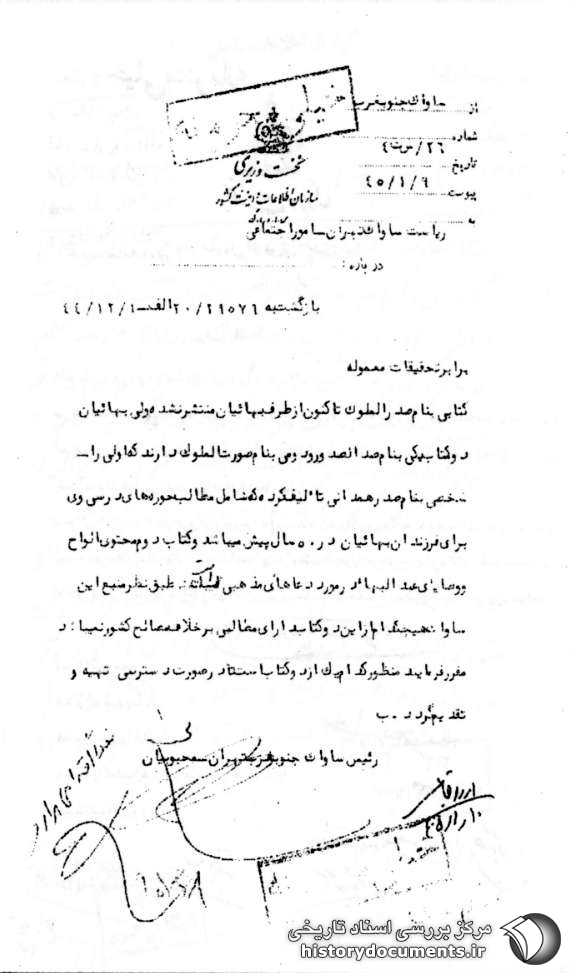 خیلی محرمانه
از ساواک جنوبغرب
شماره ۲۶/ س ت ۴
تاریخ
پیوست ۴۵/۱/۹
نخست وزیری
سازمان اطلاعات و امنیت کشور
به ریاست ساواک تهران امور اجتماعی
در باره:
بازگشت به ۲۰/۲۹۵۷۶ الف - ۴۴/۱۲/۱
برابر تحقیقات معموله
کتابی بنام صدرالملوک تاکنون از طرف بهائیان منتشر نشده ولی بهائیان
دو کتاب یکی بنام صدرالصدور و دومی بنام صورت الملوک دارند که اولی را -
شخصی بنام صدر همدانی تالیف کرده که شامل مطالب حوزه های درسی وی
برای فرزندان بهائیان در ۵۰ سال پیش میباشد و کتاب دوم محتوی الواح
و وصایای عبدالبهاء در مورد دعاهای مذهبی است. طبق نظر منبع این
ساواک هیچکدام از این دو کتاب دارای مطالبی برخلاف مصالح کشور نمیباشد
مقرر فرمایند منظور کدامیک از دو کتاب است تا در صورت دسترسی تهیه و
تقدیم گردد. ب
رئیس ساواک جنوبغرب تهران
مرکز بررسی اسناد تاریخی
historydocuments.ir